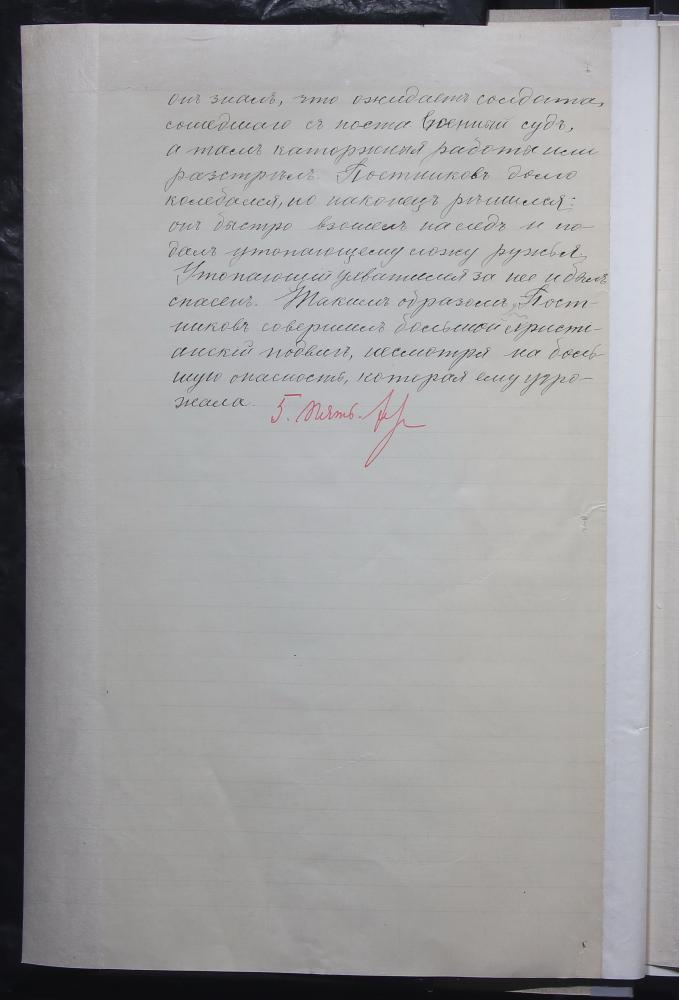 онъ зналъ, что ожидаетъ солдата,
сошедшаго съ поста Военный судъ,
а тамъ каторжныя работы или
разстрѣлъ. Постниковъ долго
колебался, но наконецъ рѣшился:
онъ быстро взошелъ на ледъ и по-
далъ утопающему ложу ружья.
Утопающій ухватился за нее и былъ
спасенъ. Такимъ образомъ, Пост-
никовъ совершилъ большой христи-
анскій подвигъ, несмотря на боль-
шую опасность, которая ему угро-
жала.
5. Пять.